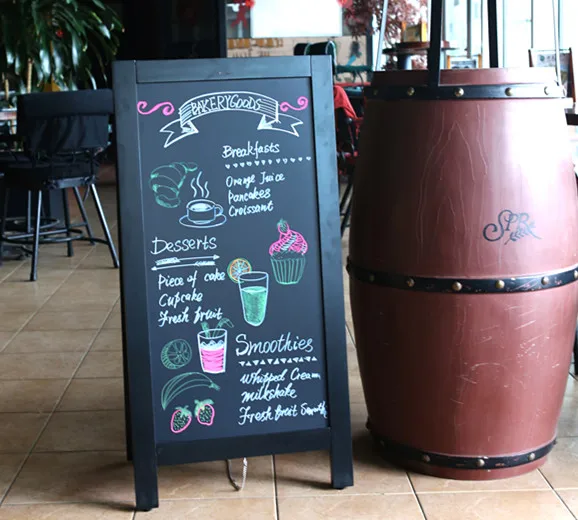 BAKERYGOODS
Breakfasts
Orange Juice
Pancakes
Croissant
Desserts
Piece of cake
Cupcake
Fresh fruit
Smoothies
Whipped Cream
Milkshake
Fresh fruit Smooth